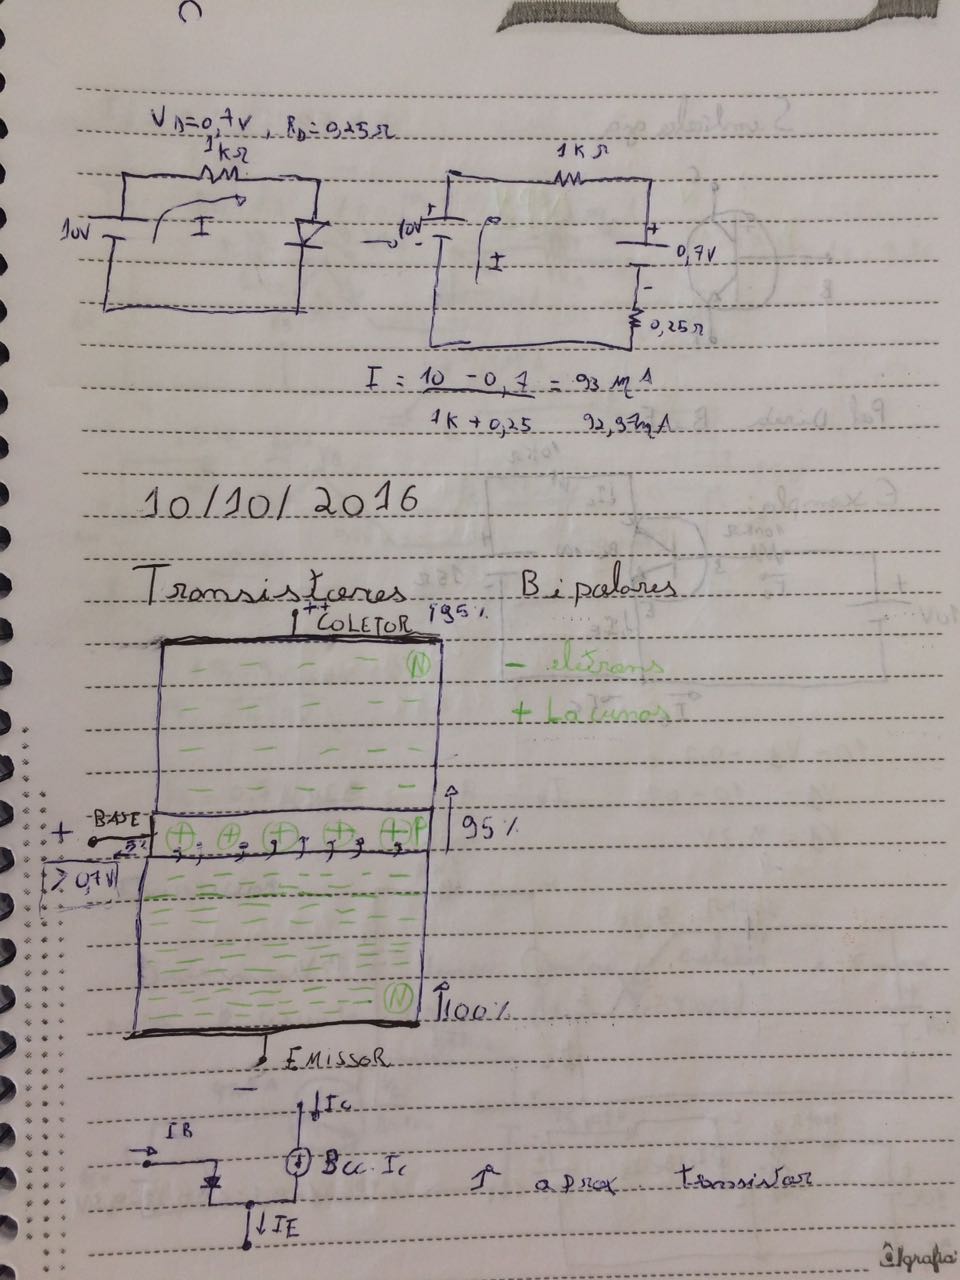 VD=0,7V, RD=0,25Ω
1KΩ
10V
I
1KΩ
+
10V
-
I
+
0,7V
-
0,25Ω
I = 10 - 0,7 = 93 mA
1K + 0,25 92,97mA
10/10/2016
Transistores Bipolares
++ COLETOR 95%
N
- elétrons
+ Lacunas
+ BASE
P
95%
5%
≥ 0,7V
N
100%
EMISSOR
-
IB
Ic
Bcc.Ic
IE
1ª aprox. transistor
grafia